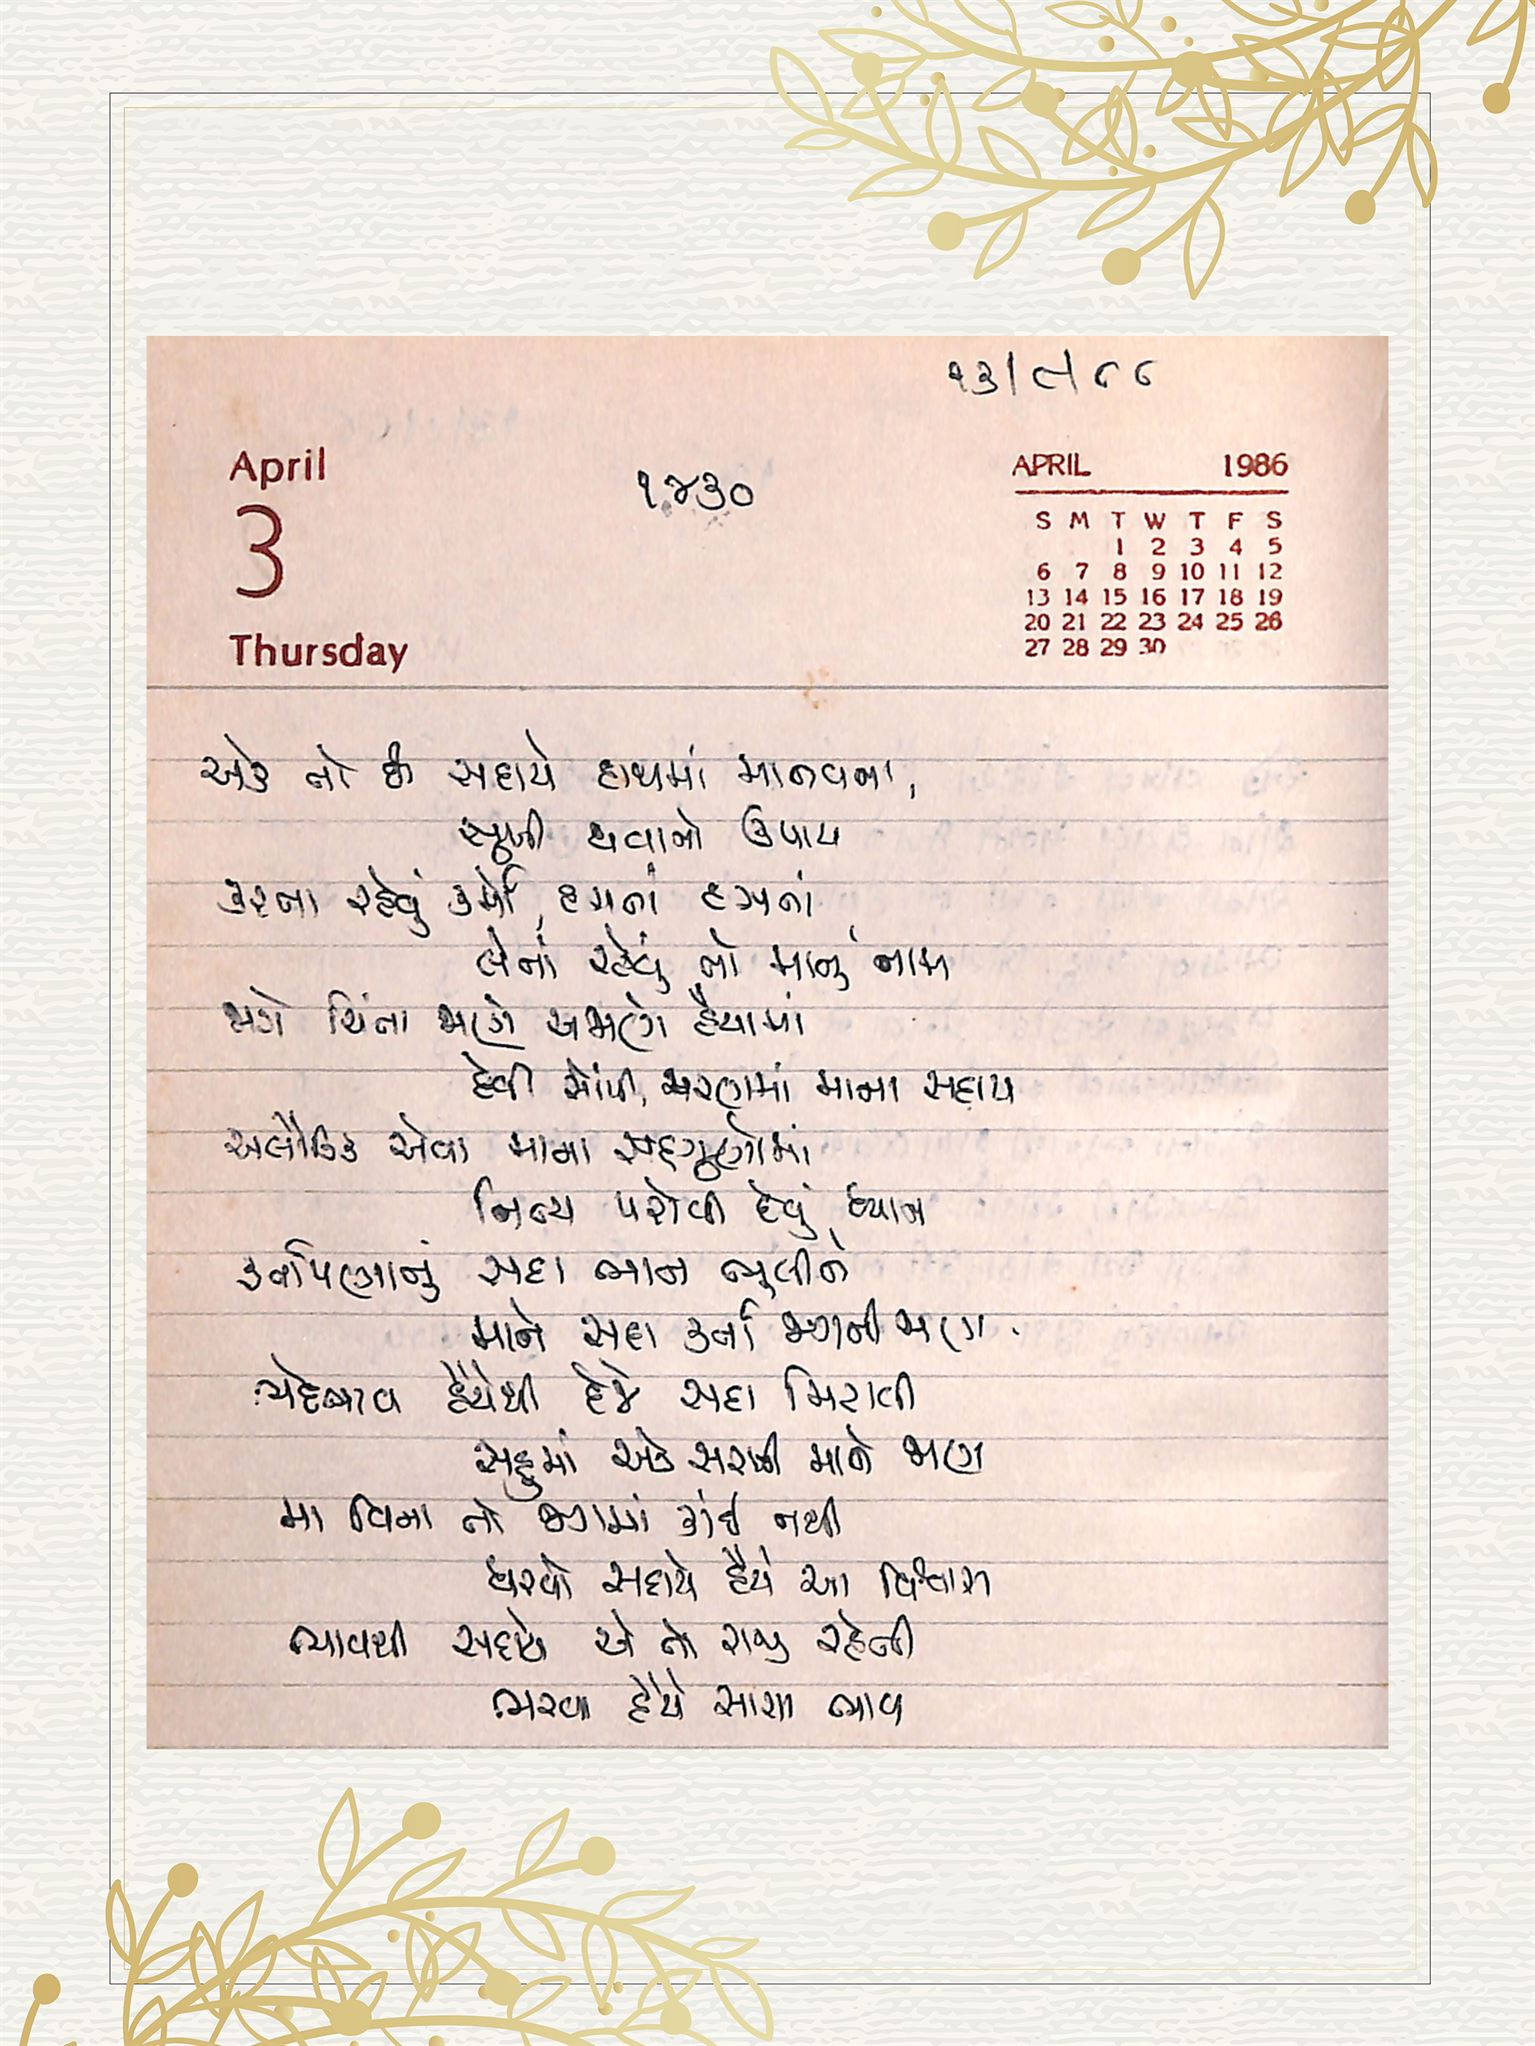 ૧૩/૯/૮૮
April
૧૪૩૦
APRIL 1986
3
S M T W T F S
1 2 3 4 5
6 7 8 9 10 11 12
13 14 15 16 17 18 19
20 21 22 23 24 25 26
27 28 29 30
Thursday
એક તો છે સદાયે હાથમાં માનવના,
સુખી થવાનો ઉપાય
કરતા રહેવું કર્મો, હસતાં હસતાં
લેતાં રહેવું તો માનું નામ
જાગે ચિંતા જાણે અજાણે હૈયામાં
દેવી સોંપી, ચરણમાં માના સદાય
અલૌકિક એવા માના સદ્દગુણોમાં
નિત્ય પરોવી દેવું ધ્યાન
કર્તાપણાનું સદા ભાન ભૂલીને
માને સદા કર્તા જગની જાણ.
ભેદભાવ હૈયેથી દેજે સદા મિટાવી
સહુમાં એક સરખી માને જાણ
મા વિના તો જગમાં કાંઈ નથી
ધરવો સદાયે હૈયે આ વિશ્વાસ
ભાવથી સદાયે એ તો રાજી રહેતી
ભરવા હૈયે સાચા ભાવ